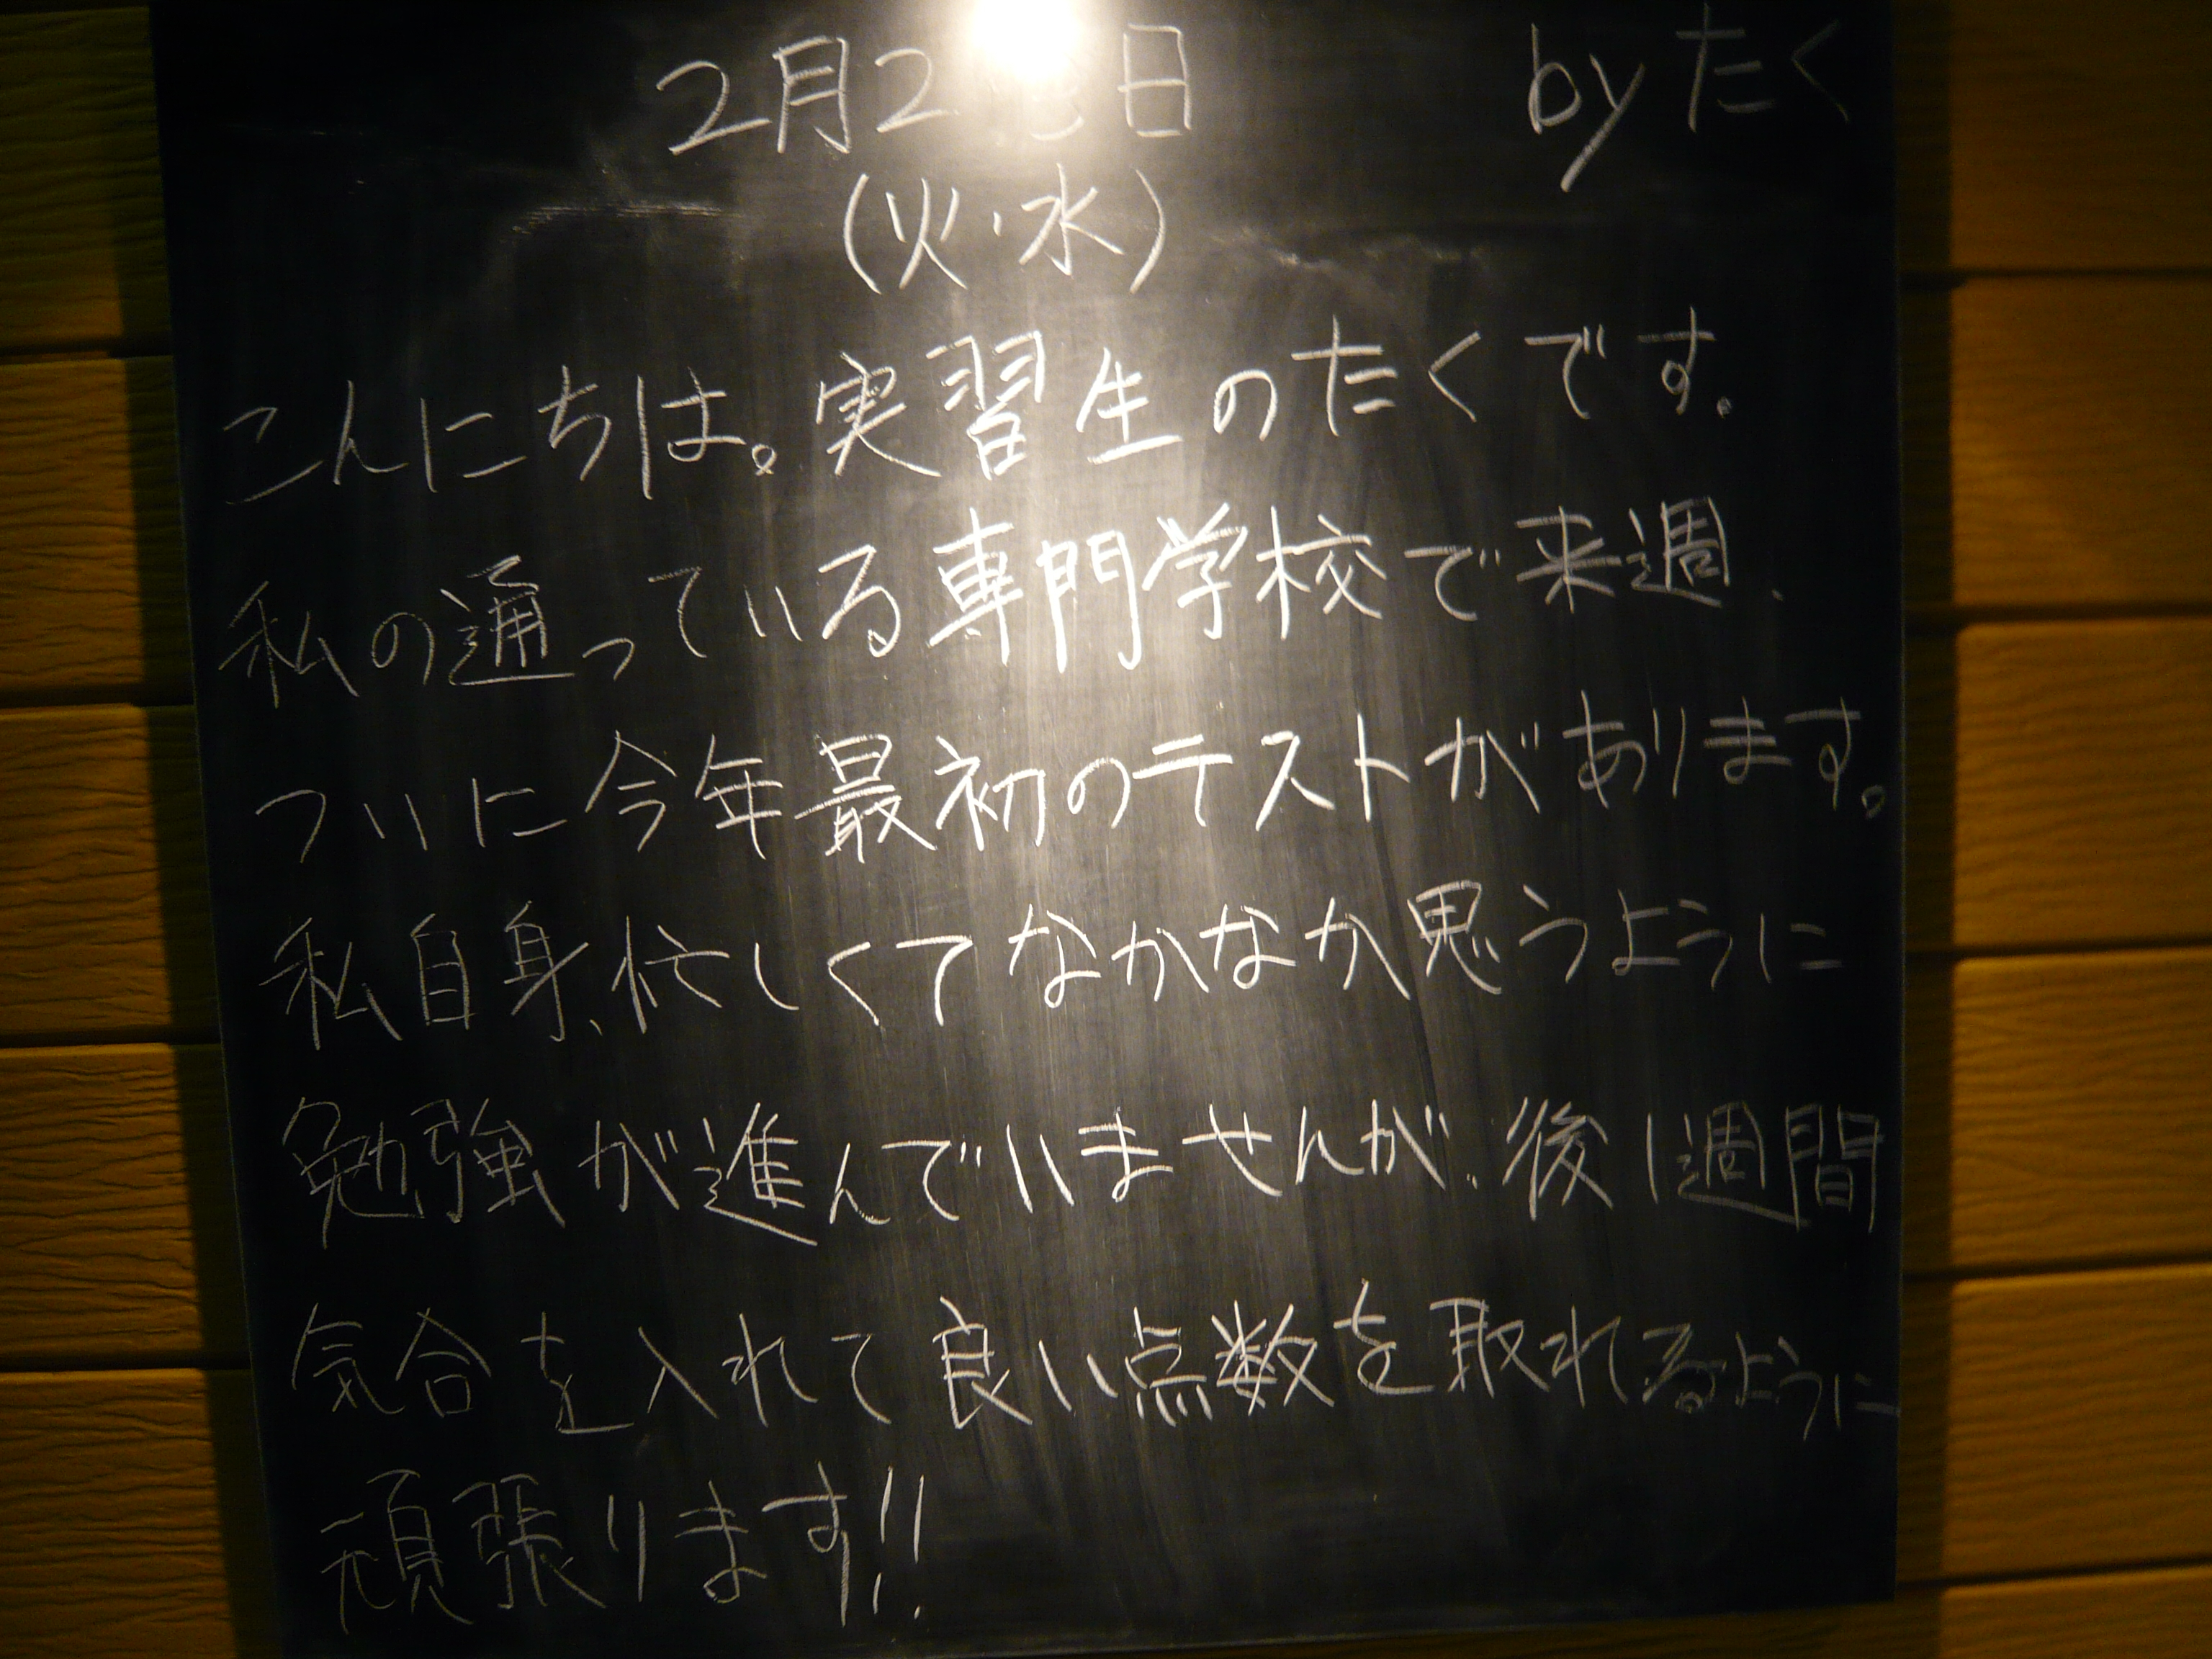 2月2 日
by たく
(火・水)
こんにちは。実習生のたくです。
私の通っている専門学校で来週、
ついに今年最初のテストがあります。
私自身、忙しくてなかなか思うように
勉強が進んでいませんが、後1週間
気合を入れて良い点数を取れるように
頑張ります!!